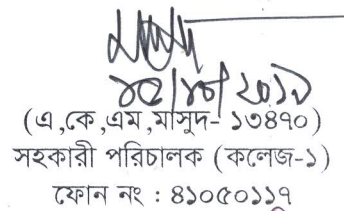 ১৫/১০/২০১৯
(এ,কে,এম,মাসুদ- ১৩৪৭০)
সহকারী পরিচালক (কলেজ-১)
ফোন নং : ৪১০৫০১১৭